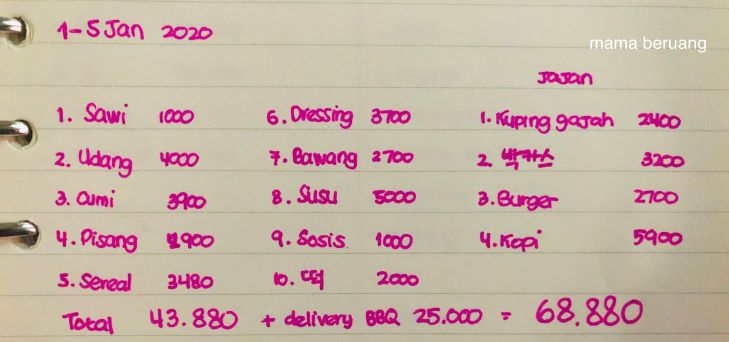 1-5 Jan 2020
mama beruang
Jajan
1. Sawi 1000 6. Dressing 3700 1. Kuping gajah 2400
2. Udang 4000 7. Bawang 2700 2. 박카스 3200
3. Cumi 3900 8. Susu 5000 3. Burger 2700
4. Pisang 2900 9. Sosis 1000 4. Kopi 5900
5. Sereal 3480 10. 떡 2000
Total 43.880 + delivery BBQ 25.000 = 68.880